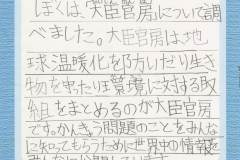 ぼくは、「大臣官房」について調
べました。大臣官房は、地
球温暖化を防いだり生き
物を守ったり環境に対する取
組をまとめるのが大臣官房
です。かんきょう問題のことをみんな
に知ってもらうために世界中の情報を